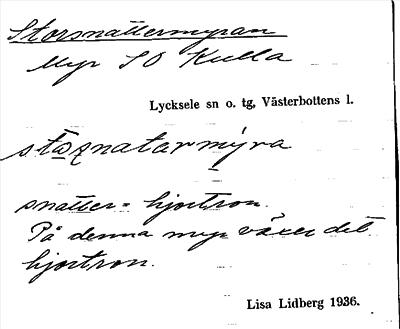 Storsnattermyran
Myr SO Kulla
Lycksele sn o. tg, Västerbottens l.
snatter = hjortron.
På denna myr växer det
hjortron.
Lisa Lidberg 1936.